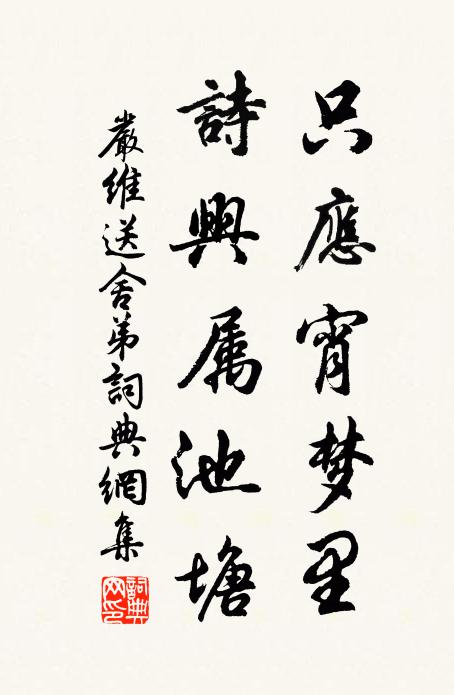 只應宵梦里
詩興属池塘
嚴維送舍弟詞典網集
詞典網印